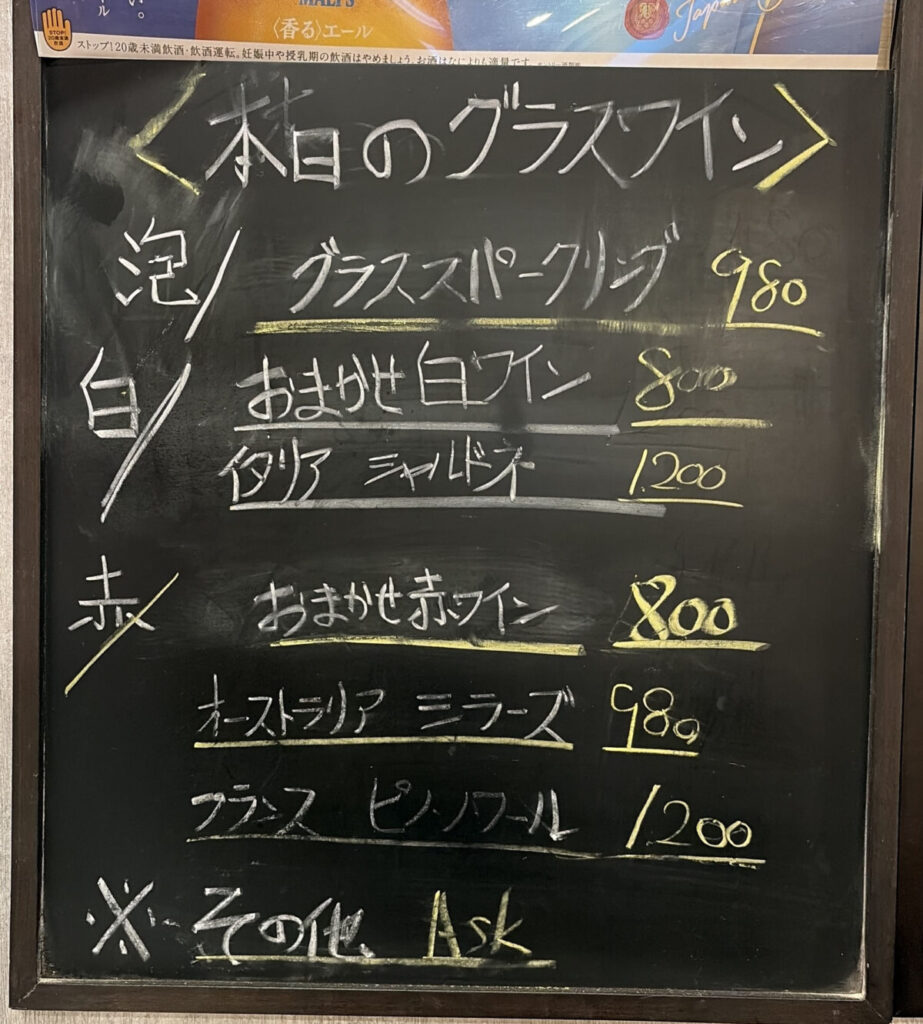 MALT'S
〈香る〉エール
STOP!
20歳未満
飲酒
ストップ!20歳未満飲酒・飲酒運転。妊娠中や授乳期の飲酒はやめましょう。お酒はなによりも適量です。
Japan
<本日のグラスワイン>
泡/ グラススパークリング 980
白/ おまかせ白ワイン 800
イタリア シャルドネ 1200
赤/ おまかせ赤ワイン 800
オーストラリア シラーズ 980
フランス ピノ・ノワール 1200
※ その他、Ask